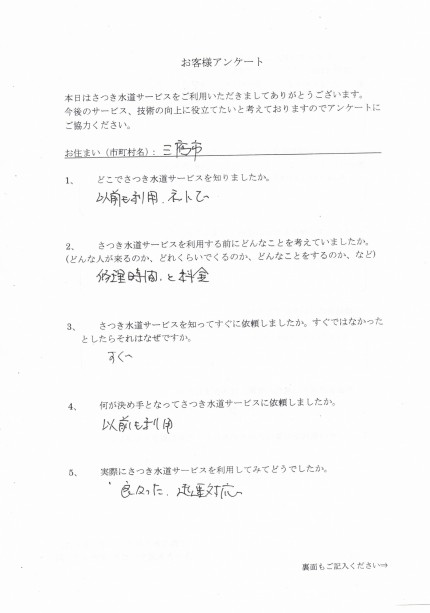 お客様アンケート
本日はさつき水道サービスをご利用いただきましてありがとうございます。
今後のサービス、技術の向上に役立てたいと考えておりますのでアンケートに
ご協力ください。
お住まい（市町村名）：三宿市
1、 どこでさつき水道サービスを知りましたか。
以前も利用.ネットで
2、 さつき水道サービスを利用する前にどんなことを考えていましたか。
(どんな人が来るのか、どれくらいでくるのか、どんなことをするのか、など)
修理時間.と料金
3、 さつき水道サービスを知ってすぐに依頼しましたか。すぐではなかった
としたらそれはなぜですか。
すぐへ
4、 何が決め手となってさつき水道サービスに依頼しましたか。
以前も利用
5、 実際にさつき水道サービスを利用してみてどうでしたか。
良かった.迅速対応
裏面もご記入ください⇒